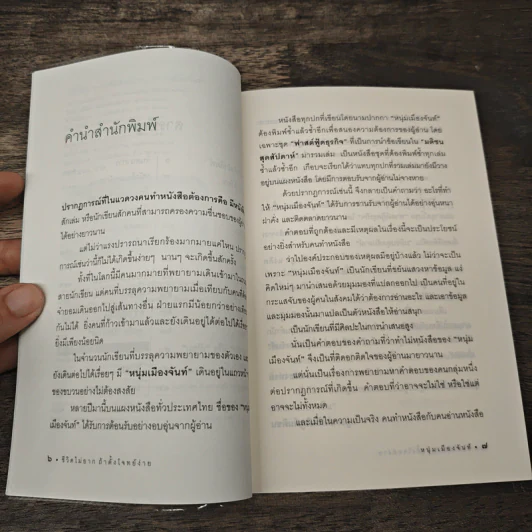 คำนำสำนักพิมพ์
ปรากฏการณ์ที่ในแวดวงคนทำหนังสือต้องการคือ มีหนังสือ
สักเล่ม หรือนักเขียนสักคนที่สามารถครองความชื่นชอบของผู้อ่าน
ได้อย่างยาวนาน
แต่ไม่ว่าแรงปรารถนาเรียกร้องมากมายแค่ไหน ปรากฏ
การณ์เช่นว่านี้ก็ไม่ได้เกิดขึ้นง่ายๆ นานๆ จะเกิดขึ้นสักครั้ง
ทั้งที่ในโลกนี้มีคนมากมายที่พยายามเดินเข้ามาใน
สายนักเขียน แต่คนที่บรรลุความพยายามเมื่อเทียบกับคน
จ่ายอมเดินออกไปสู่เส้นทางอื่น ฝ่ายแรกมีน้อยกว่าอย่าง
กันไม่ได้ ยิ่งคนที่ก้าวเข้ามาแล้วและยังเดินอยู่ได้ต่อไปได้
ยิ่งมีเพียงน้อยนิด
ในจำนวนนักเขียนที่บรรลุความพยายามของตัวเอง
ยังเดินต่อไปได้เรื่อยๆ มี "หนุ่มเมืองจันท์" เดินอยู่ในแถวหน้า
ของขบวนอย่างไม่ต้องสงสัย
หลายปีมานี้บนแผงหนังสือทั่วประเทศไทย ชื่อของ "หนุ่ม
เมืองจันท์" ได้รับการต้อนรับอย่างอบอุ่นจากผู้อ่าน
๖ • ชีวิตไม่ยาก ถ้าตั้งโจทย์ง่าย
หนังสือทุกปกที่เขียนโดยนามปากกา "หนุ่มเมืองจันท์"
ต้องพิมพ์ซ้ำแล้วซ้ำอีกเพื่อสนองความต้องการของผู้อ่าน โดย
เฉพาะชุด "ฟาสต์ฟู้ดธุรกิจ" ที่เป็นการนำข้อเขียนใน "มติชน
สุดสัปดาห์" มารวมเล่ม เป็นหนังสือชุดที่ต้องพิมพ์ซ้ำทุกเล่ม
ซ้ำแล้วซ้ำอีก เกือบจะเรียกได้ว่าแทบทุกปกที่รวมเล่มมายังมีวาง
อยู่บนแผงหนังสือ โดยมีการตอบรับจากผู้อ่านไม่จางหาย
ด้วยปรากฏการณ์เช่นนี้ จึงกลายเป็นคำถามว่า อะไรที่ทำ
ให้ "หนุ่มเมืองจันท์" ได้รับการขานรับจากผู้อ่านได้อย่างหนา
ฝาคั่ง และติดตลาดยาวนาน
คำตอบที่ถูกต้องและมีเหตุผลในเรื่องนี้จะเป็นประโยชน์
อย่างยิ่งสำหรับคนทำหนังสือ
ว่าไปองค์ประกอบของเหตุผลมีอยู่บ้างแล้ว ไม่ว่าจะเป็น
เพราะ "หนุ่มเมืองจันท์" เป็นนักเขียนที่ขยันแสวงหาข้อมูล แง่
คิดใหม่ๆ มานำเสนอด้วยมุมมองที่แปลกออกไป เป็นคนที่อยู่ใน
กระแสใจของผู้คนในสังคมได้ว่าต้องการอ่านอะไร และเอาข้อมูล
และมุมมองนั้นมาแปลเป็นตัวหนังสือให้อ่านสนุก
เป็นนักเขียนที่มีศิลปะในการนำเสนอสูง
นั่นเป็นคำตอบของคำถามที่ว่าทำไมหนังสือของ "หนุ่มเมือง
จันท์" จึงเป็นที่ติดอกติดใจของผู้อ่านมายาวนาน
แต่นั่นก็เป็นเรื่องของการพยายามหาคำตอบของคนกลุ่มหนึ่ง
ต่อปรากฏการณ์ที่เกิดขึ้น คำตอบที่ว่าอาจจะไม่ใช่ หรือใช่แต่
อาจจะไม่ทั้งหมด
และเมื่อในความเป็นจริง คนทำหนังสือกับคนอ่านหนังสือ
หนุ่มเมืองจันท์ • ๗